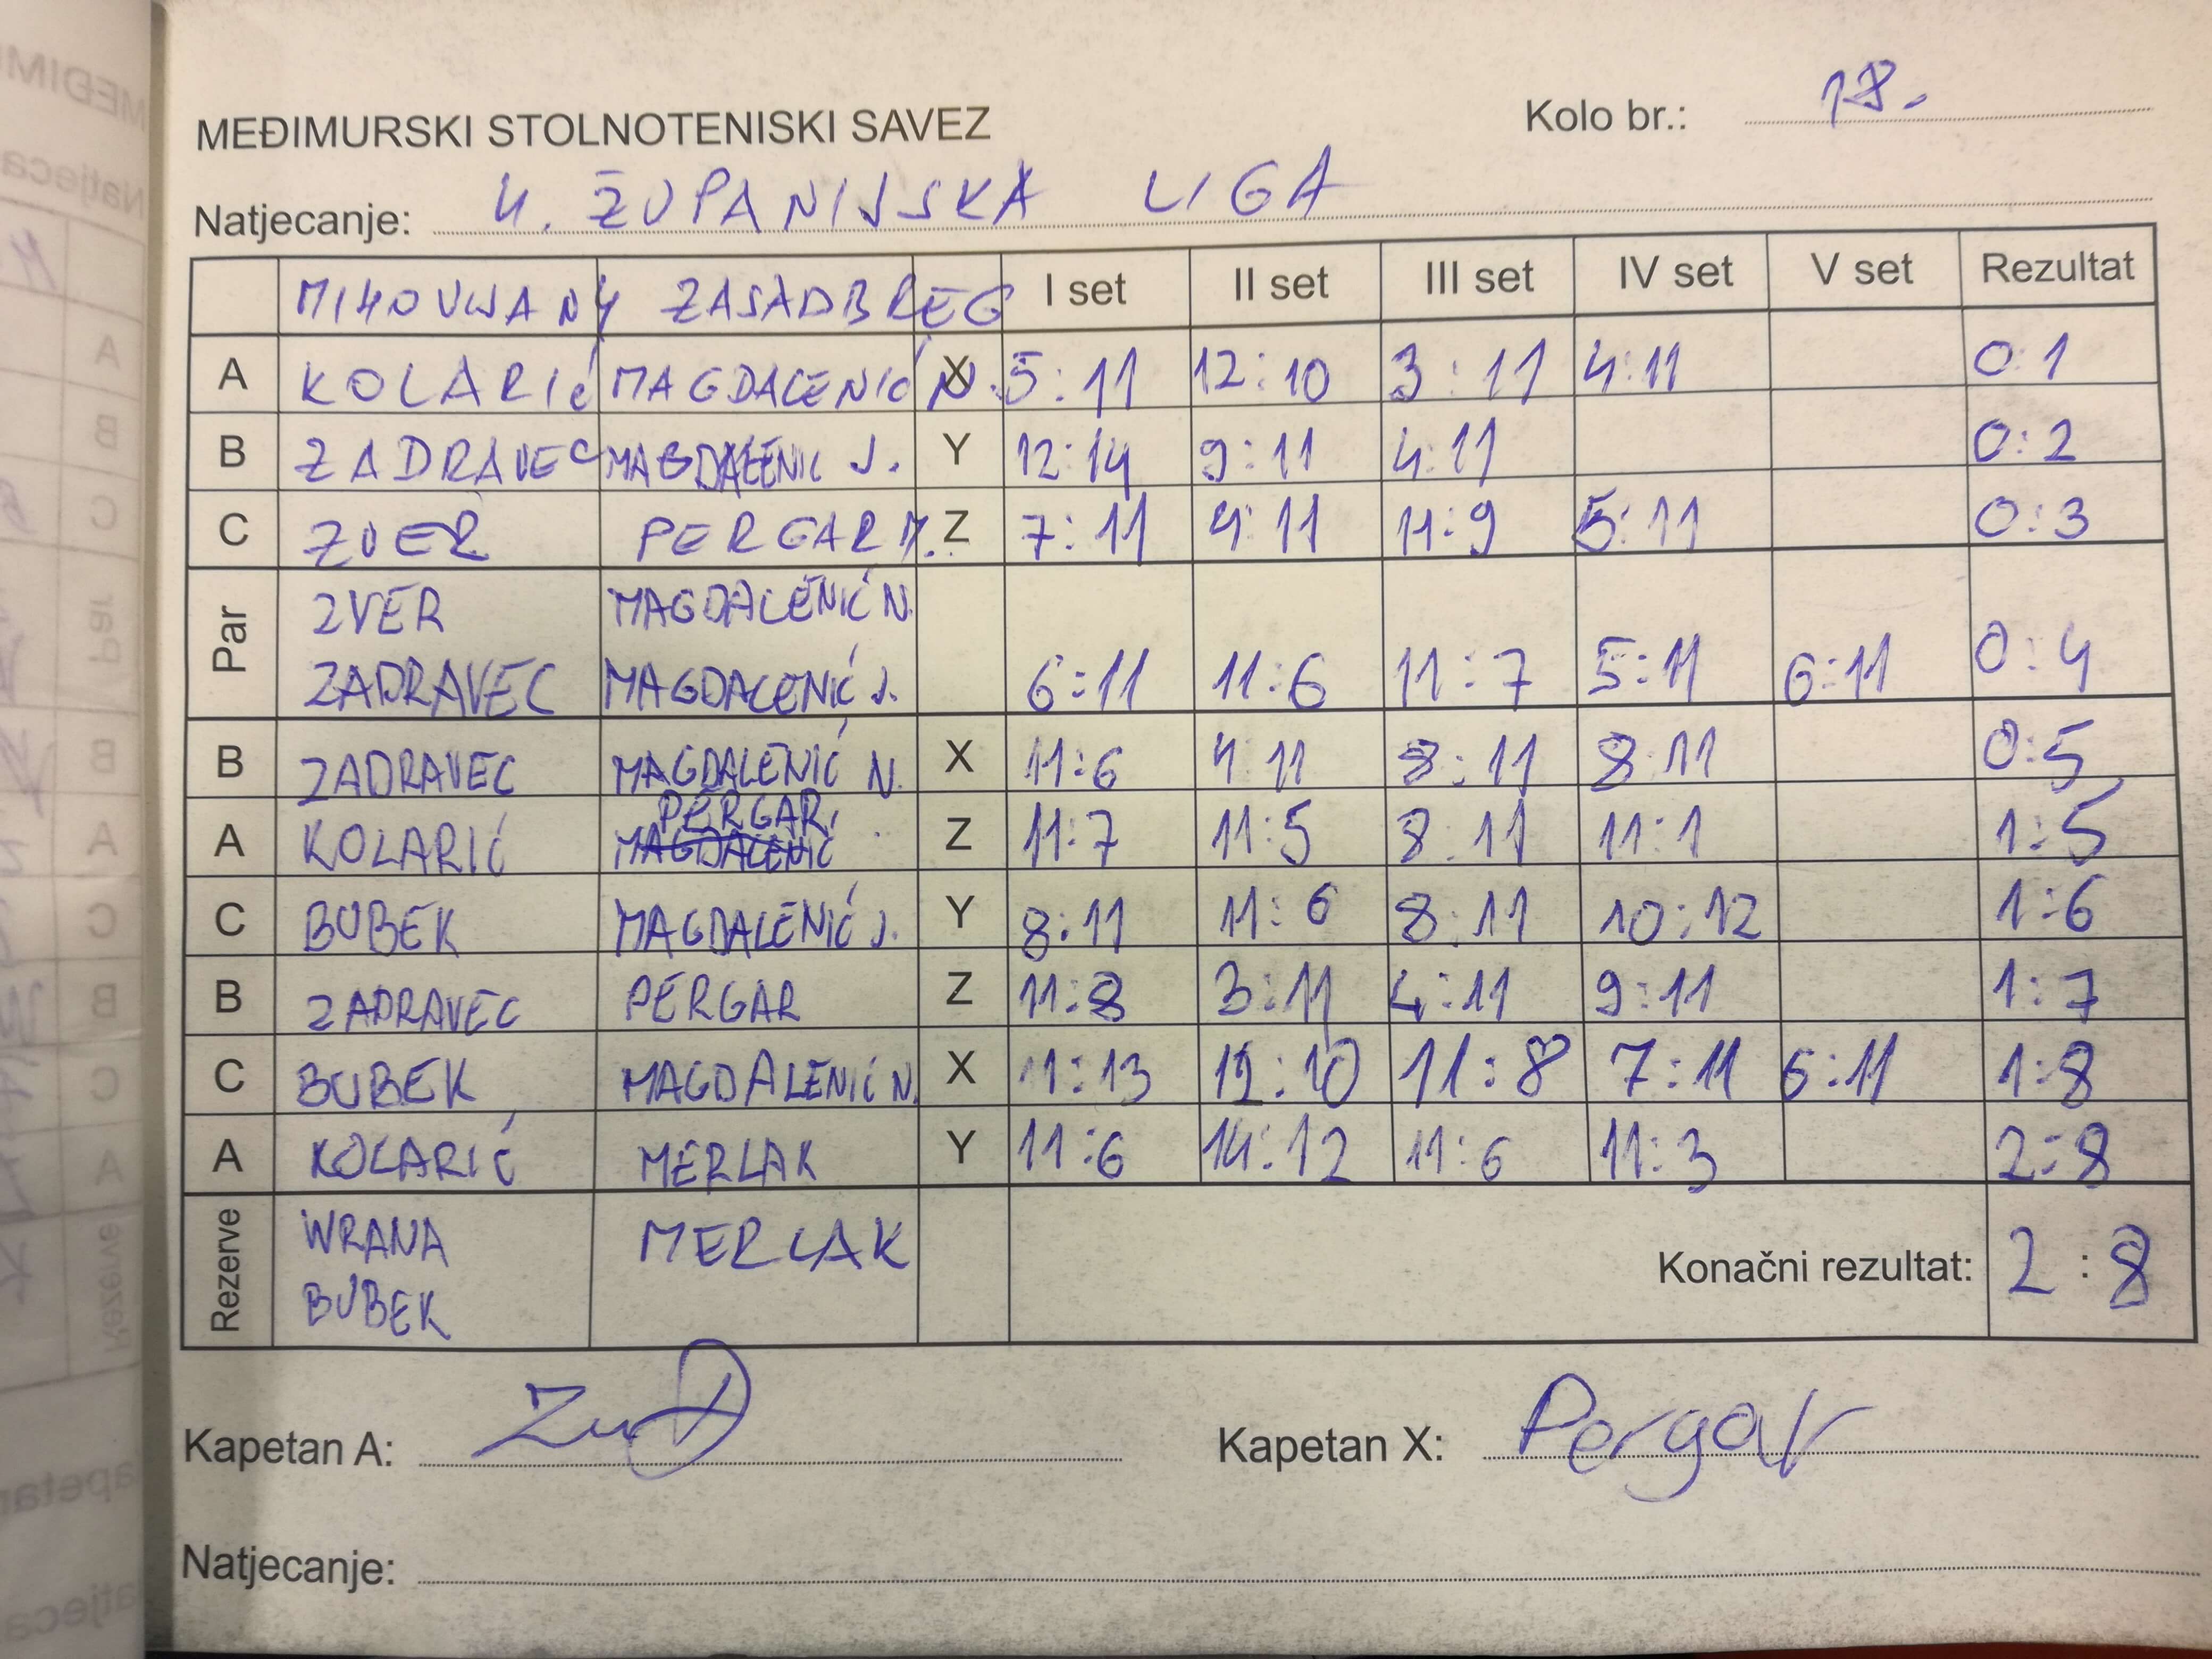 MEĐIMURSKI STOLNOTENISKI SAVEZ
Kolo br.: 18.
Natjecanje: 4. ŽUPANIJSKA LIGA
MIHOVLJAN 4 ZASADBREG I set II set III set IV set V set Rezultat
A KOLARIĆ MAGDALENIĆ N. X 5:11 12:10 3:11 4:11 0:1
B ZADRAVEC MAGDALENIC J. Y 12:14 9:11 4:11 0:2
C ZVER PERGAR M. Z 7:11 4:11 11:9 5:11 0:3
Par ZVER MAGDALENIĆ N.
ZADRAVEC MAGDALENIĆ J. 6:11 11:6 11:7 5:11 6:11 0:4
B ZADRAVEC MAGDALENIĆ N. X 11:6 4:11 8:11 8:11 0:5
PERGAR
A KOLARIĆ MAGDALENIĆ Z 11:7 11:5 8:11 11:1 1:5
C BUBEK MAGDALENIĆ J. Y 8:11 11:6 8:11 10:12 1:6
B ZADRAVEC PERGAR Z 11:8 3:11 4:11 9:11 1:7
C BUBEK MAGDALENIĆ N. X 11:13 12:10 11:8 7:11 6:11 1:8
A KOLARIĆ MERLAK Y 11:6 14:12 11:6 11:3 2:8
Rezerve WRANA MERLAK
BUBEK
Konačni rezultat: 2:8
Kapetan A:
Kapetan X: Pergar
Natjecanje: